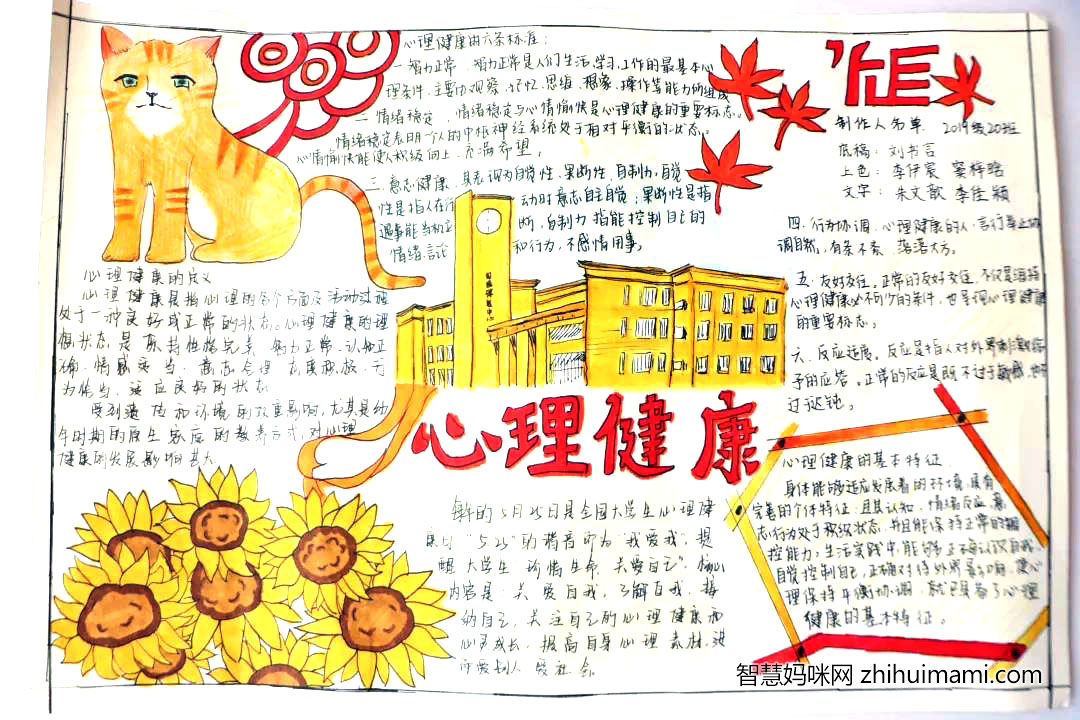 心理健康的六条标准：
一 智力正常，智力正常是人们生活、学习、工作的最基本心
理条件，主要由观察、记忆、思维、想象、操作等能力的组成
二 情绪稳定，情绪稳定与心情愉快是心理健康的重要标志。
情绪稳定表明个人的中枢神经系统处于相对平衡的状态。
心情愉快能使人积极向上，充满希望。
三 意志健康，具表现为自觉性、果断性、自制力，自觉
性是指人在行动时意志自主自觉；果断性是指
遇事能当机立断，自制力指能控制自己的
情绪、言论和行为，不感情用事。
制作人名单 2019级20班
底稿：刘书言
上色：李伊宸 窦梓晗
文字：朱文歌 李佳颖
四、行为协调，心理健康的人，言行举止协
调自然，有条不紊，落落大方。
五、友好交往。正常的友好交往，不仅是维持
心理健康必不可少的条件，也是现心理健康
的重要标志。
六、反应适度。反应是指人对外界刺激给
予的应答。正常的反应是既不过于敏感，也不
过迟钝。
心理健康的定义
心理健康是指心理的各个方面及活动过程
处于一种良好或正常的状态。心理健康的理
想状态是保持性格完美、智力正常、认知正
确、情感适当、意志合理、态度积极、行
为恰当、适应良好的状态
受到遗传和环境的双重影响，尤其是幼
年时期的原生家庭的教养方式，对心理
健康的发展影响甚大
心理健康
每年的5月25日是全国大学生心理健
康日 "5.25"的谐音即为"我爱我"，提
醒大学生"珍惜生命、关爱自己"。核心
内容是：关爱自我，了解自我，接
纳自己，关注自己的心理健康和
心灵成长，提高自身心理素质，进
而爱别人 爱社会
心理健康的基本特征
身体能够适应发展着的环境，具有
完善的个体特征；且其认知，情绪反应，意
志行为处于积极状态，并且能保持正常的调
控能力；生活实践中，能够正确认识自我，
自觉控制自己，正确对待外界影响，使心
理保持平衡协调，就已具备了心理
健康的基本特征。
智慧妈咪网 zhihuimami.com